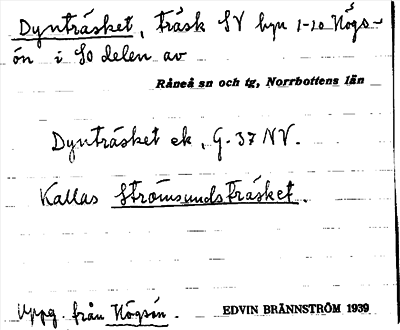 Dynträsket, träsk SV byn 1-10 Högs-
ön i SO delen av
Råneå sn och tg, Norrbottens län
Dynträsket ek, G. 37 NV.
Kallas Strömsundsträsket.
Uppg. från Högsön.
EDVIN BRÄNNSTRÖM 1939